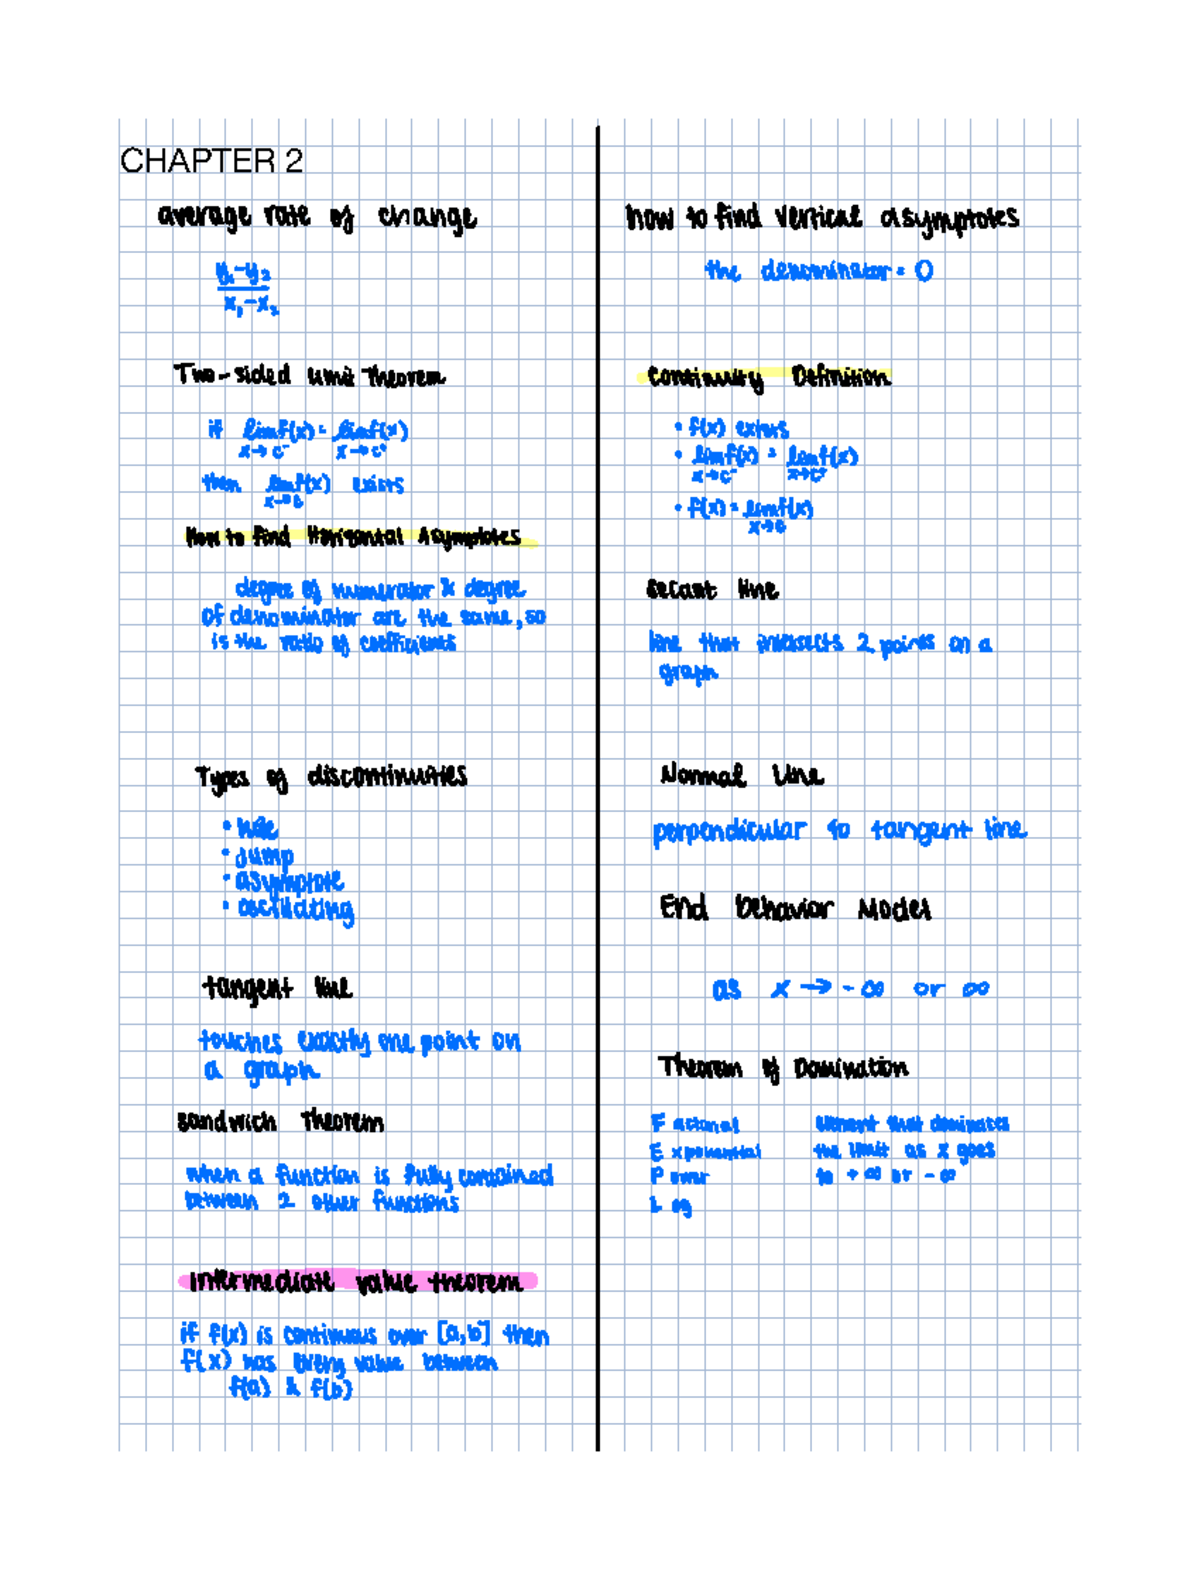 CHAPTER 2
average rate of change
y₁-y₂
x₁-x₂
Two-sided limit Theorem
if lim f(x) = lim f(x)
x→c⁻ x→c⁺
then lim f(x) exists
x→c
How to find Horizontal Asymptotes
degree of numerator & degree
of denominator are the same, so
is the ratio of coefficients
Types of discontinuities
• hole
• jump
• asymptote
• oscillating
tangent line
touches exactly one point on
a graph
sandwich Theorem
when a function is fully contained
between 2 other functions
intermediate value theorem
if f(x) is continuous over [a,b] then
f(x) has every value between
f(a) & f(b)
how to find vertical asymptotes
the denominator = 0
Continuity Definition
• f(x) exists
• lim f(x) = lim f(x)
x→c⁻ x→c⁺
• f(x) = lim f(x)
x→c
secant line
line that intersects 2 points on a
graph
Normal Line
perpendicular to tangent line
End behavior Model
as x → -∞ or ∞
Theorem of Domination
F actorial
E xponential
P ower
L og
element that dominates
the limit as x goes
to +∞ or -∞